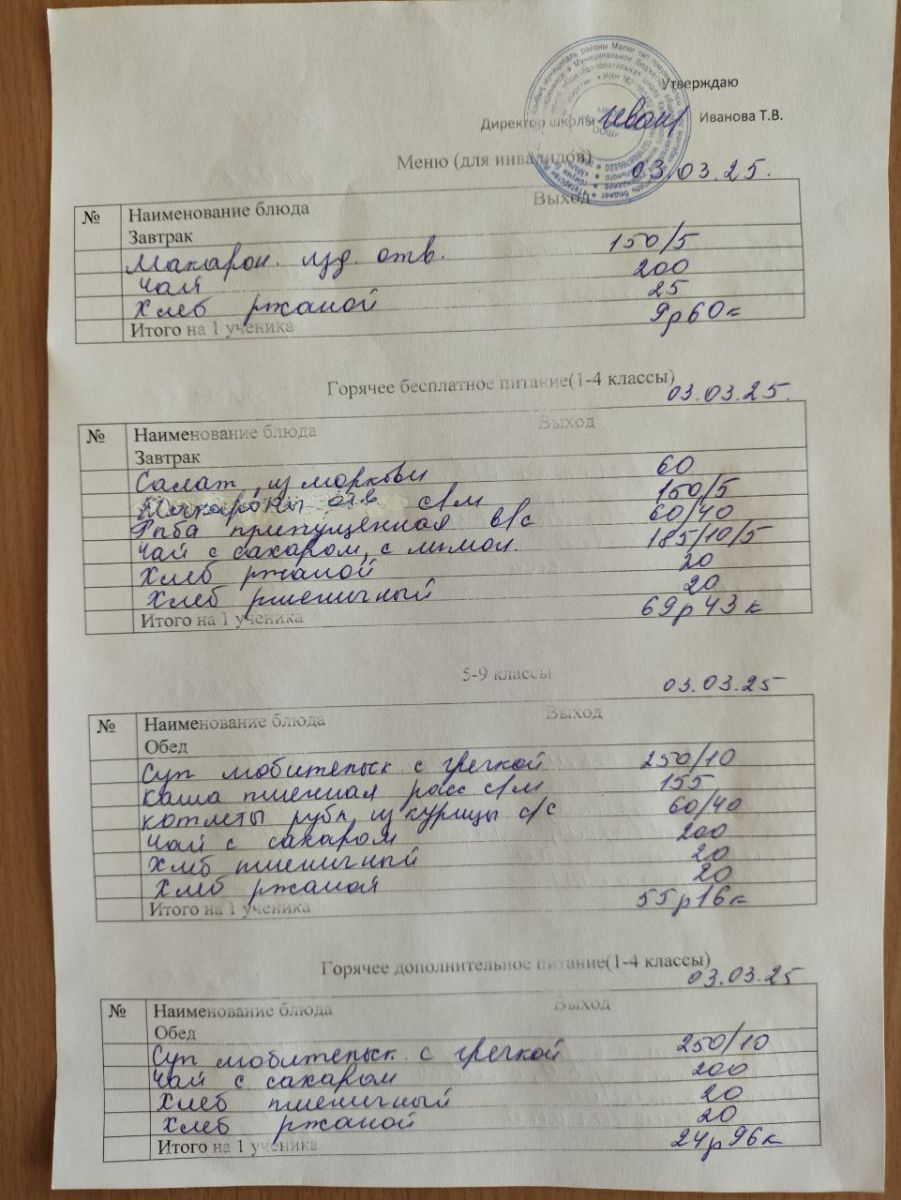 Утверждаю
Директор школы Иванова Т.В.
Меню (для инвалидов) 03.03.25.
№ Наименование блюда Выход
Завтрак
Макарон. изд. отв. 150/5
Чай 200
Хлеб ржаной 25
Итого на 1 ученика 9р60к
Горячее бесплатное питание(1-4 классы) 03.03.25.
№ Наименование блюда Выход
Завтрак
Салат из моркови 60
Макароны отв с/м 150/5
Рыба припущенная в/с 60/40
Чай с сахаром, с лимон. 185/10/5
Хлеб ржаной 20
Хлеб пшеничный 20
Итого на 1 ученика 69р43к
5-9 классы 03.03.25
№ Наименование блюда Выход
Обед
Суп любительск с гречкой 250/10
Каша пшенная расс с/м 155
Котлеты рубл из курицы с/с 60/40
Чай с сахаром 200
Хлеб пшеничный 20
Хлеб ржаной 20
Итого на 1 ученика 55р16к
Горячее дополнительное питание(1-4 классы) 03.03.25
№ Наименование блюда Выход
Обед
Суп любительск. с гречкой 250/10
Чай с сахаром 200
Хлеб пшеничный 20
Хлеб ржаной 20
Итого на 1 ученика 24р96к